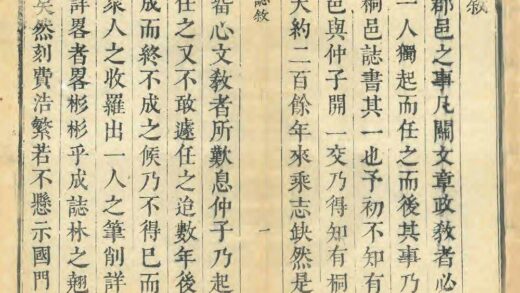 敘
郡邑之事凡關文章政敎者必
一人獨起而任之而後其事乃
桐邑誌書其一也予初不知有
邑與仲子開一交乃得知有桐
大約二百餘年來乘志缺然是
誌敘 一
心文敎者所歎息仲子乃起
任之又不敢遽任之迨數年後
成而終不成之候乃不得已而
衆人之收羅出一人之筆削詳
詳畧者畧彬彬乎成誌林之翹
矣然刻費浩繁若不懸示國門